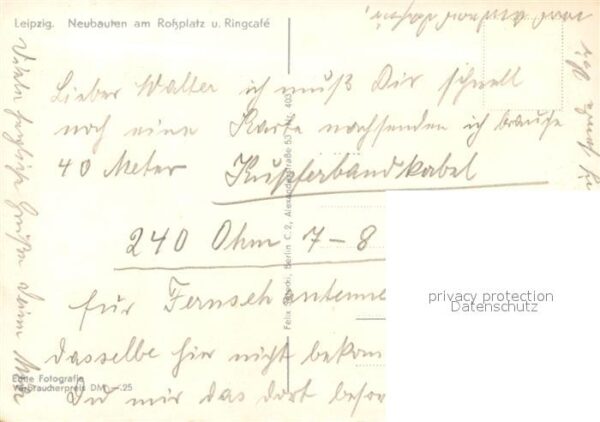 Leipzig. Neubauten am Roßplatz u. Ringcafé
Lieber Walter ich muß Dir schnell
noch eine Karte nachsenden ich brauche
40 Meter Kupferbandkabel
240 Ohm 7-8
für Fernsehantenne
dasselbe hier nicht bekom
Du mir das dort besor
Viele herzliche Grüße Deine
Echte Fotografie
Verbraucherpreis DM -.25
Berlin C 2, Alexanderstraße
privacy protection
Datenschutz